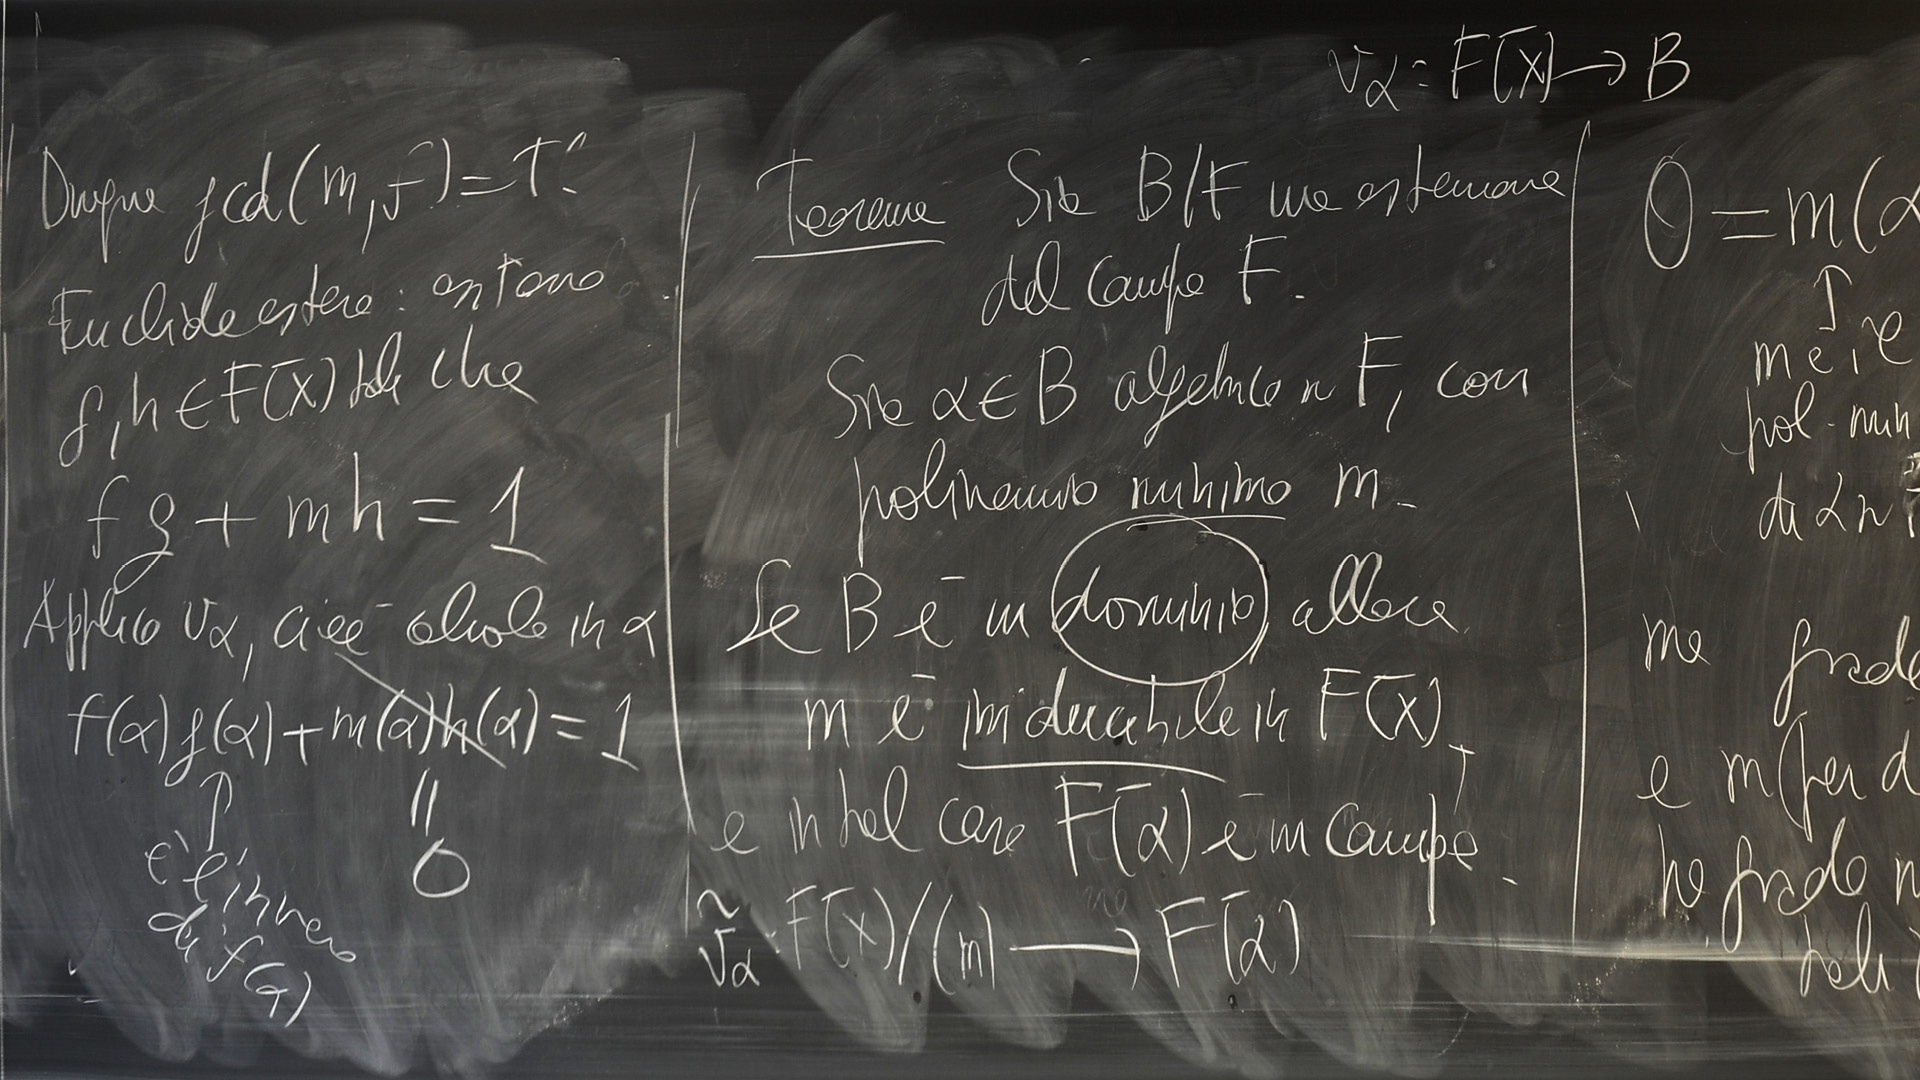 v_α : F[x] → B
Dunque gcd(m, f) = 1.
Euclide esteso: esistono
g, h ∈ F[x] tali che
f g + m h = 1
Applico v_α, cioè valuto in α
f(α) g(α) + m(α) h(α) = 1
↑ ||
è l'inverso 0
di f(α)
Teorema Sia B/F una estensione
del campo F.
Sia α ∈ B algebrico su F, con
polinomio minimo m.
Se B è un dominio, allora
m è irriducibile in F[x],
e in tal caso F[α] è un campo.
ṽ_α : F[x]/(m) → F[α]
0 = m(α
↑
m è il
pol. min
di α su F
ma grado
e m (per d
ha grado m